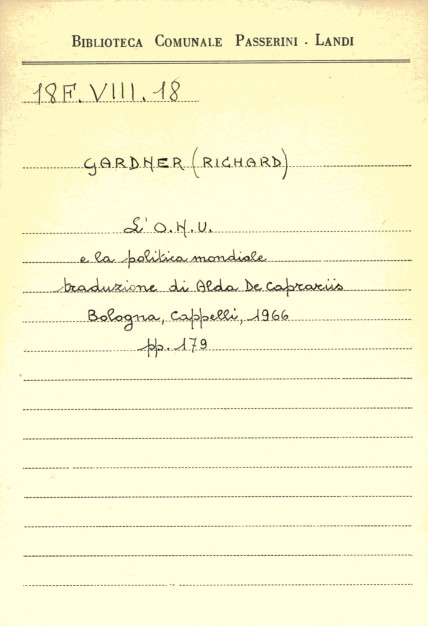 BIBLIOTECA COMUNALE PASSERINI - LANDI
18F. VIII. 18
GARDNER (RICHARD)
L' O.N.U.
e la politica mondiale
traduzione di Alda De Caprariis
Bologna, Cappelli, 1966
pp. 179